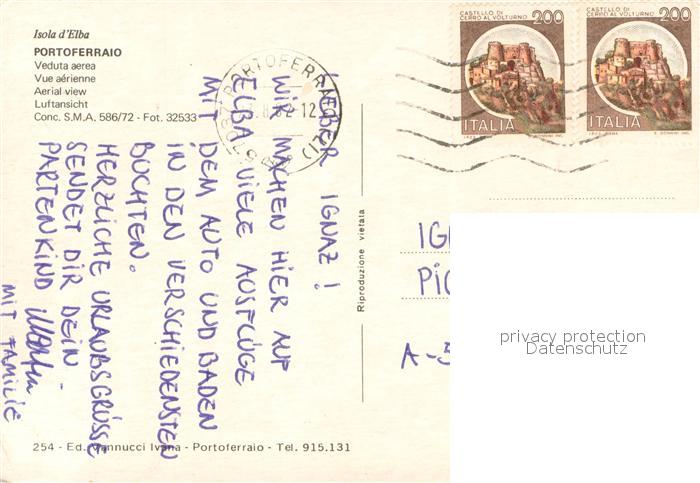 Isola d'Elba
PORTOFERRAIO
Veduta aerea
Vue aérienne
Aerial view
Luftansicht
Conc. S.M.A. 586/72 - Fot. 32533
CASTELLO DI
CERRO AL VOLTURNO 200
ITALIA
CASTELLO DI
CERRO AL VOLTURNO 200
ITALIA
PORTOFERRAIO (LI)
82-12
LIEBER IGNAZ!
WIR MACHEN HIER AUF
ELBA VIELE AUSFLÜGE
MIT DEM AUTO UND BADEN
IN DEN VERSCHIEDENSTEN
BUCHTEN.
HERZLICHE URLAUBSGRÜSSE
SENDET DIR DEIN
PARTENKIND
MIT FAMILIE
Riproduzione vietata
IG
PIC
A-5
privacy protection
Datenschutz
254 - Ed. Vannucci Ivana - Portoferraio - Tel. 915.131